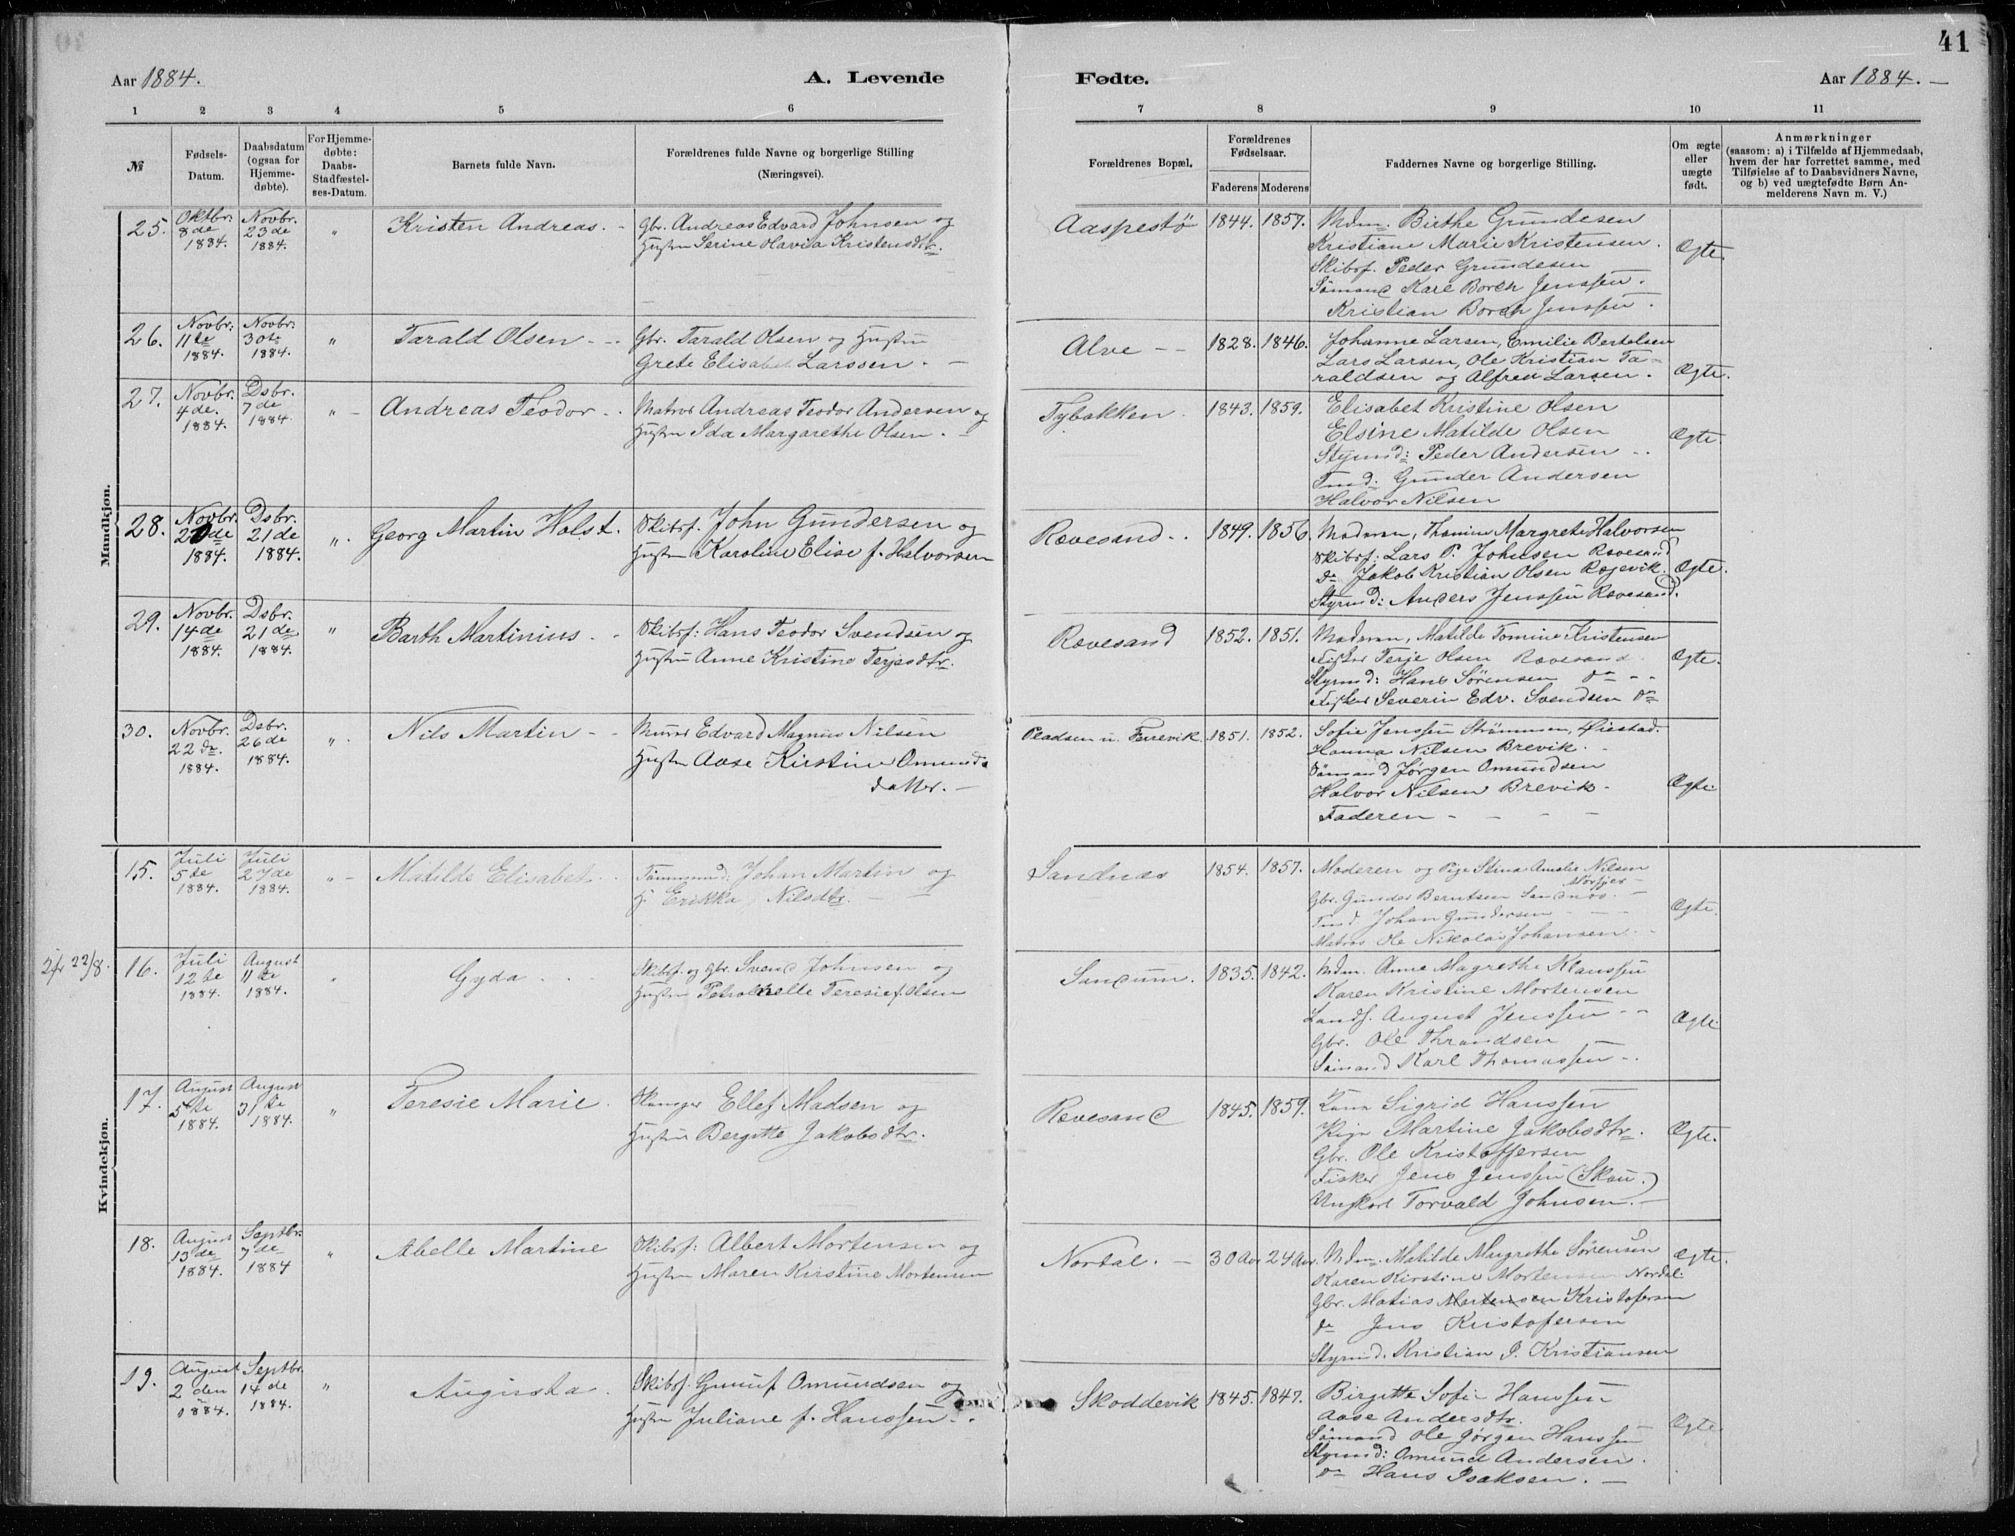 41
Aar 1884.
A. Levende
Fødte.
Aar 1884. —
1 2 3 4 5 6
7 8 9 10 11
№
Fødsels-
Datum.
Daabsdatum
(ogsaa for
Hjemme-
døbte).
For Hjemme-
døbte:
Daabs-
Stadfæstel-
ses-Datum.
Barnets fulde Navn.
Forældrenes fulde Navne og borgerlige Stilling
(Næringsvei).
Forældrenes Bopæl.
Forældrenes
Fødselsaar.
Faderens Moderens
Faddernes Navne og borgerlige Stilling.
Om ægte
eller
uægte
født.
Anmærkninger
(saasom: a) i Tilfælde af Hjemmedaab,
hvem der har forrettet samme, med
Tilføielse af to Daabsvidners Navne,
og b) ved uægtefødte Børn An-
melderens Navn m. V.)
Mandkjøn.
25.
Oktbr.
8de
1884.
Novbr.
23de
1884.
"
Kristen Andreas. -
Gbr. Andreas Edvard Johnsen og
Hustru Serine Olavia Kristensdtr.
Aaspestø
1844. 1857.
Mdm. Birthe Grundesen
Kristiane Marie Kristensen.
Skibsf. Peder Grundesen
Sømand Karl Borch Jenssen.
Kristian Borch Jenssen.
Ægte.
26.
Novbr.
11te
1884.
Novbr.
30te
1884.
"
Tarald Olsen - -
Gbr. Tarald Olsen og Hustru
Grete Elisabet Larssen. —
Alve - -
1828. 1846.
Johanne Larsen, Emilie Bertelsen
Lars Larsen, Ole Kristian Ta-
raldsen og Alfred Larsen.
Ægte.
27.
Novbr.
4de.
1884.
Dsbr.
7de
1884.
" -
Andreas Teodor - .
Matros Andreas Teodor Andersen og
Hustru Ida Margarethe Olsen. -
Tybakken.
1843. 1859.
Elisabet Kristine Olsen
Elsine Matilde Olsen
Styrmd: Peder Andersen - .
Tmd: Gunder Andersen
Halvor Nilsen
Ægte.
28.
Novbr.
20de
1884.
Dsbr.
21de
1884.
".
Georg Martin Holst.
Skibsf. John Gundersen og
Hustru Karoline Elise f. Halvorsen
Rævesand - .
1849. 1856.
Moderen, Thomine Margrete Halvorsen
Skibsf: Lars P. Johnsen Rævesand
do Jakob Kristian Olsen Røgevik.
Styrmd: Anders Jenssen Rævesand.
Ægte.
29.
Novbr.
14de
1884.
Dsbr.
21de
1884.
"
Barth Martinius - .
Skibsf: Hans Teodor Svendsen og
Hustru Anne Kristine Terjesdtr.
Rævesand
1852. 1851.
Moderen, Matilde Tomine Kristensen
Fisker Terje Olsen Rævesand
Styrmd: Hans Sørensen do - -
Fisker Severin Edv. Svendsen do
Ægte.
30.
Novbr.
22de.
1884.
Dsbr.
26de
1884.
".
Nils Martin - -
Murer Edvard Magnus Nilsen
Hustru Aase Kirstine Omunds
datter. -
Pladsen u. Færevik.
1851. 1852.
Sofie Jenssen Strømmen, Øiestad.
Hanna Nilsen Brevik. .
Sømand Jørgen Omundsen
Halvor Nilsen Brevik.
Faderen - - - -
Ægte.
Kvindekjøn.
15.
Juli
5de
1884.
Juli
27de
1884.
" -
Matilde Elisabet. .
Tømmermd: Johan Martin og
H. Erikka Nilsdtr. —
Sandnæs
1854. 1857.
Moderen og Pige Stina Amalie Nilsen
Mørfjær -
Gbr. Gunder Berntsen Sandnæs. -
Tmd. Johan Gundersen - - -
Matros Ole Nikolai Johansen. -
Ægte.
22/8.
16.
Juli
12te
1884.
August
11te
1884.
"
Gyda . .
Skibsf. og Gbr. Svend Johnsen og
Hustru Petronelle Teresie f. Olsen
Sandum.
1835. 1842.
Mdm. Anne Magrethe Klaussen
Karen Kristine Mortensen
Landh. August Jenssen - -
Gbr. Ole Thrandsen
Sømand Karl Thomassen - .
Ægte.
17.
August
5te
1884.
August
31te
1884.
"
Teresie Marie.
Ellef Madsen og
Hustru Bergitte Jakobsdtr.
Rævesand
1845. 1859.
Kona Sigrid Hanssen
Pige Martine Jakobsdtr.
Gbr. Ole Kristoffersen
Fisker Jens Jenssen (Skau.)
Ungkarl Torvald Johnsen. -
Ægte.
18.
August
13de
1884.
Septbr.
7de
1884
"
Abelle Martine
Skibsf: Albert Mortensen og
Hustru Maren Kirstine Mortensen
Nordal. -
30 Aar 24 Aar.
Mdm. Matilde Margrethe Sørensen
Karen Kirstine Mortensen Nordal.
Gbr. Matias Mortensen Kristofersen
do Jens Kristofersen
Styrmd. Kristian J. Kristiansen
Ægte.
19.
August
2den
1884.
Septbr.
14de
1884.
"
Augusta.
Skibsf. Gunuf Omundsen og
Hustru Juliane f. Hanssen. .
Skoddevik
1845. 1847.
Birgitte Sofie Hanssen
Aase Andersdtr.
Sømand Ole Jørgen Hanssen
Styrmd: Omund Andersen.
do Hans Isaksen. -
Ægte.